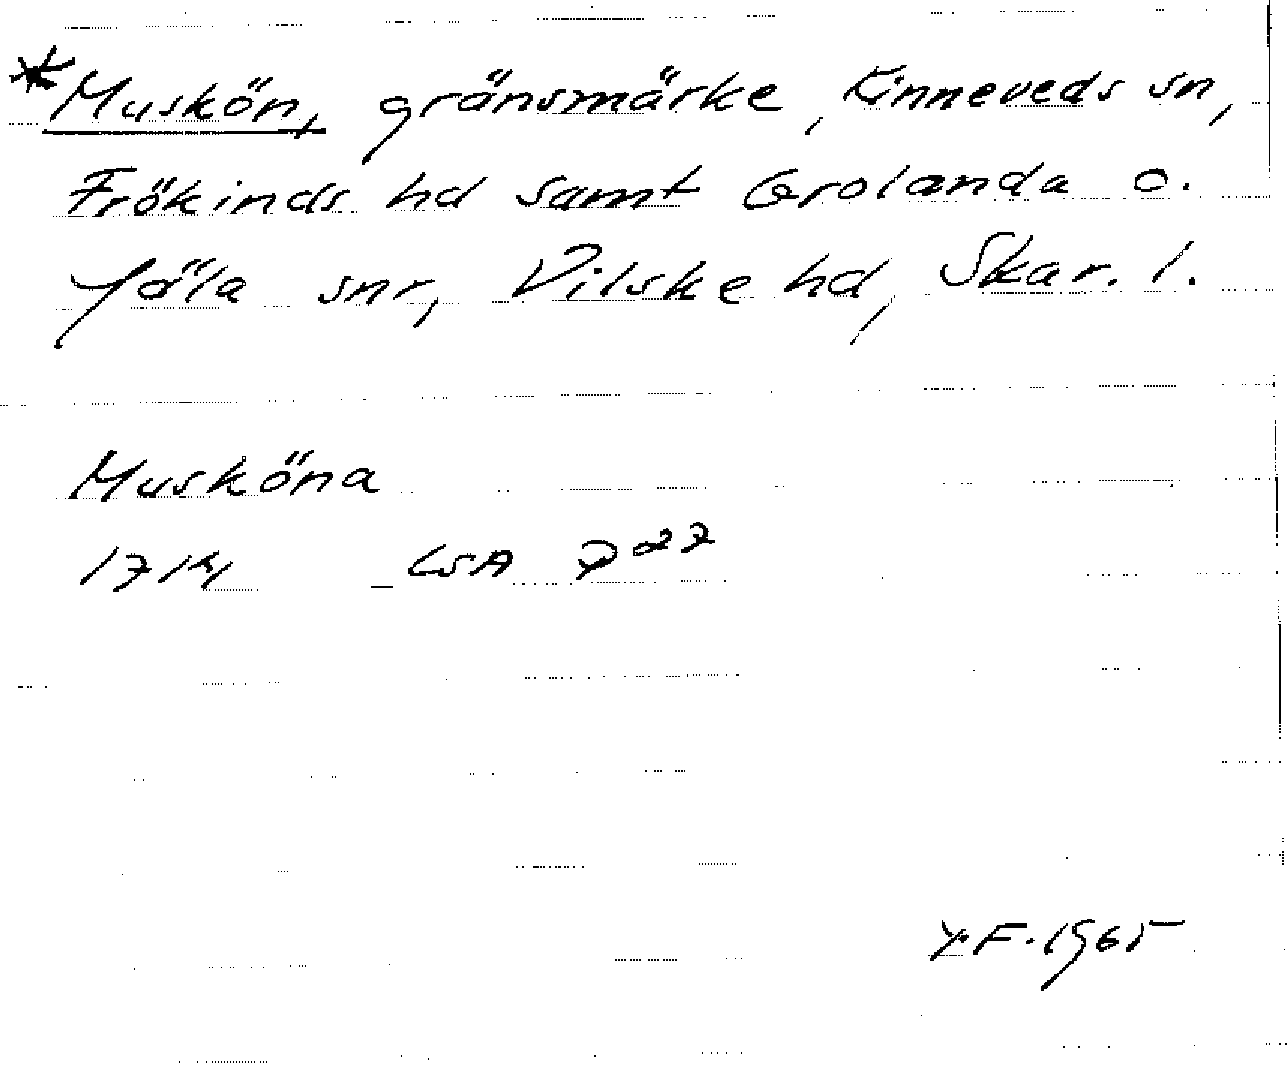 *Muskön, gränsmärke, Kinneveds sn,
Frökinds hd samt Grolanda o.
Jäla snr, Vilske hd, Skar. l.
Musköna
1714 LSA P 227
Y.F. 1965